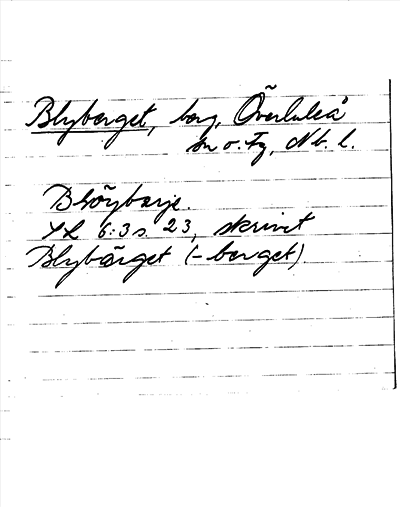 Blyberget, berg, Överluleå
sn o. tg, Nb. l.
Blöybarje.
XX 6:3 s. 23, skrivet
Blybärget (-berget).